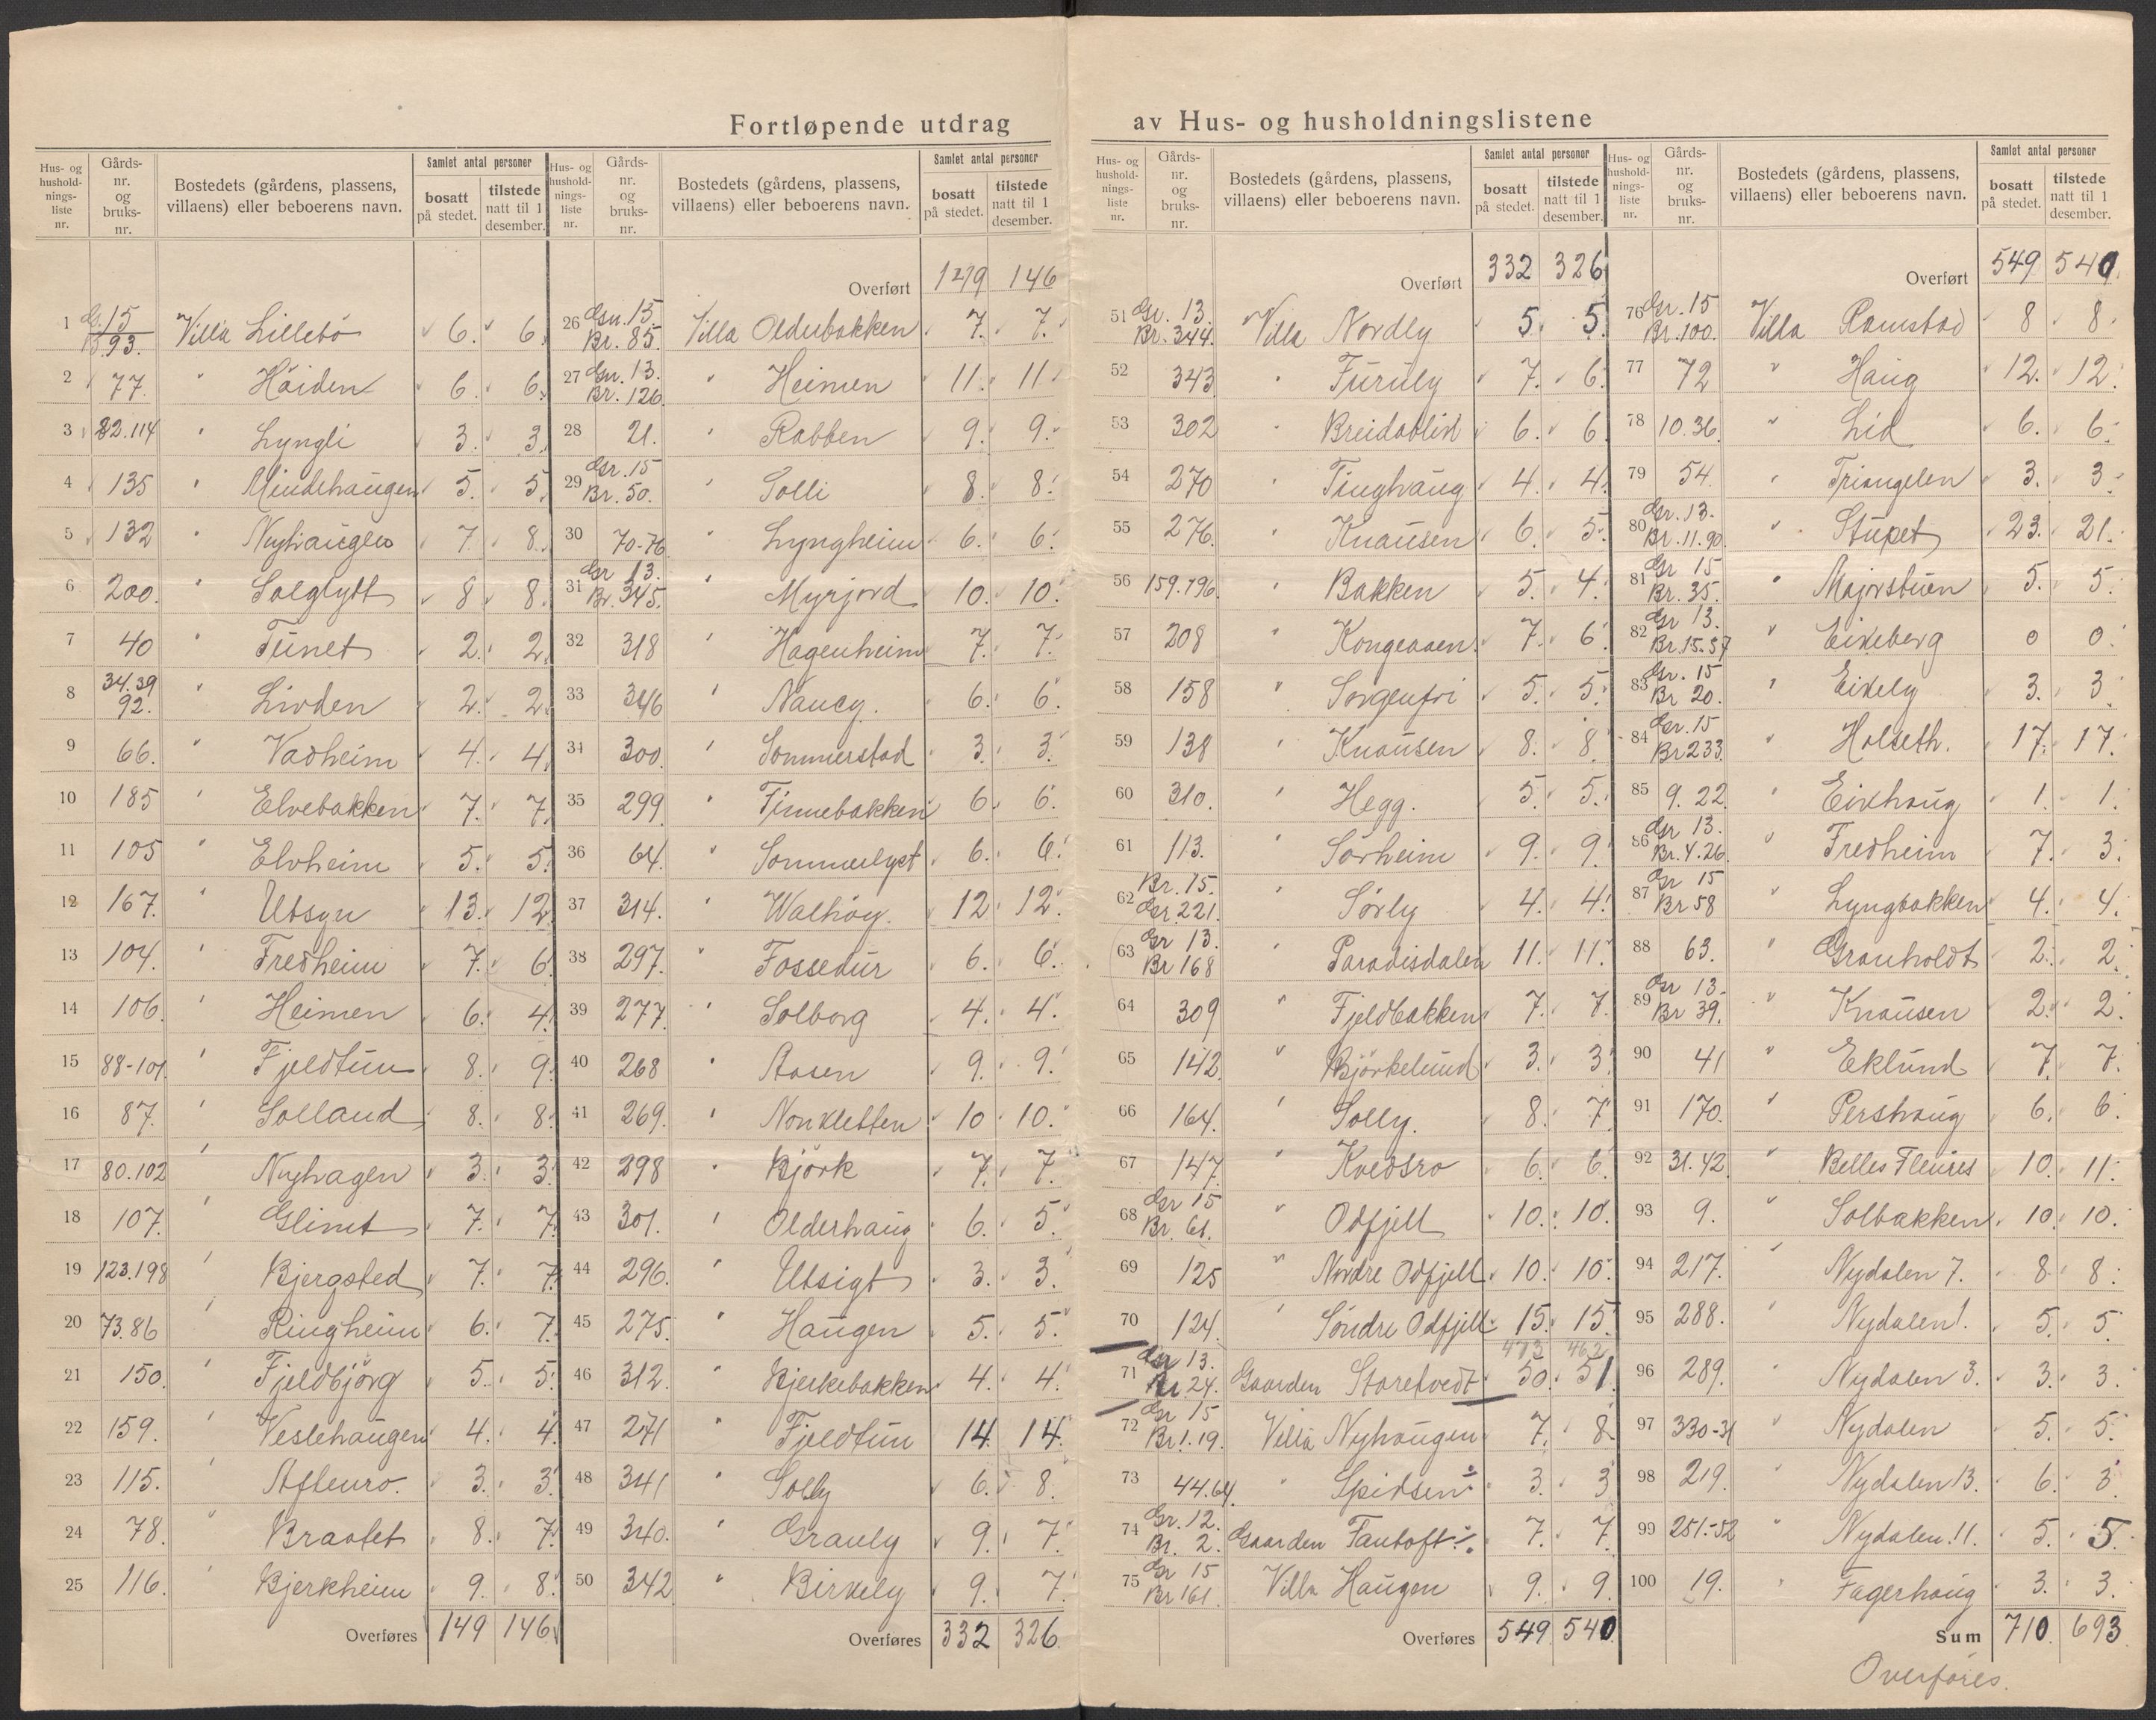 Fortløpende utdrag av Hus- og husholdningslistene
Hus- og husholdnings-liste nr. Gårds-nr. og bruks-nr. Bostedets (gårdens, plassens, villaens) eller beboerens navn. Samlet antal personer bosatt på stedet. tilstede natt til 1 desember.
1 G. 15 B. 93. Villa Lillebö 6. 6.
2 77. " Höiden 6. 6.
3 82.114 " Lyngli 3. 3.
4 135 " Mindehaugen 5. 5.
5 132 " Nyhaugen 7. 8.
6 200. " Solglytt 8 8.
7 40 " Tunet 2. 2.
8 34.39 92. " Livden 2. 2.
9 66. " Vadheim 4. 4.
10 185 " Elvebakken 7. 7.
11 105 " Elvheim 5. 5.
12 167. " Utsyn 13. 12.
13 104. " Fredheim 7. 6.
14 106. " Heimen 6. 4.
15 88-101 " Fjeldtun 8. 9.
16 87. " Solland 8. 8.
17 80.102 " Nyhagen 3. 3.
18 107. " Glimt 7. 7.
19 123.198 " Bjergsted 7. 7.
20 73.86 " Ringheim 6. 7.
21 150. " Fjeldbjörg 5. 5.
22 159. " Veslehaugen 4. 4.
23 115. " Afleuro. 3. 3.
24 78. " Braatet 8. 7.
25 116. " Bjerkheim 9. 8.
Overføres 149 146
Hus- og husholdnings-liste nr. Gårds-nr. og bruks-nr. Bostedets (gårdens, plassens, villaens) eller beboerens navn. Samlet antal personer bosatt på stedet. tilstede natt til 1 desember.
Overført 149 146
26 Gn. 15 Br. 85. Villa Oldubakken 7. 7.
27 Gn. 13. Br. 126. " Heimen 11. 11
28 21. " Rabben 9. 9.
29 Gr. 15 Br. 50. " Solli 8. 8.
30 70-76 " Lyngheim 6. 6.
31 Gr 13. Br. 345. " Myrjord 10. 10.
32 318 " Hagenheim 7. 7.
33 346 " Nancy. 6. 6.
34 300. " Sommerstad 3. 3.
35 299. " Finnebakken 6. 6.
36 64. " Sommerlyst 6. 6.
37 314. " Walhöy. 12 12.
38 297. " Fossedur 6. 6.
39 277. " Solborg 4. 4.
40 268 " Aasen 9. 9.
41 269. " Nonkletten 10 10.
42 298 " Björk 7. 7.
43 301. " Olderhaug 6. 5.
44 296. " Utsigt 3. 3.
45 275. " Haugen 5. 5.
46 312. " Bjerkebakken 4. 4.
47 271 " Fjeldtun 14. 14.
48 341 " Solly 6. 8.
49 340. " Granly 9. 7.
50 342 " Birkely 9. 7.
Overføres 332 326.
Hus- og husholdnings-liste nr. Gårds-nr. og bruks-nr. Bostedets (gårdens, plassens, villaens) eller beboerens navn. Samlet antal personer bosatt på stedet. tilstede natt til 1 desember.
Overført 332 326
51 Gr. 13. Br. 344. Villa Nordly 5. 5.
52 343 " Furuly 7. 6.
53 302 " Breidablik 6. 6.
54 270 " Tinghaug 4. 4.
55 276. " Knausen 6. 5.
56 159.196. " Bakken 5. 4.
57 208 " Kongeaasen. 7. 6.
58 158 " Sorgenfri 5. 5.
59 138 " Knausen 8. 8.
60 310. " Hegg. 5. 5.
61 113. " Sörheim 9. 9.
62 Br. 15. Gr 221. " Sörly 4. 4.
63 Gr 13. Br 168 " Paradisdalen 11. 11.
64 309 " Fjeldbakken 7. 7.
65 142. " Björkelund 3. 3.
66 164. " Solly. 8. 7.
67 147. " Kvedsro 6. 6.
68 Gr 15 Br. 61. " Odfjell 10. 10.
69 125 " Nordre Odfjell 10. 10.
70 124. " Söndre Odfjell 15. 15.
473 462
71 Gr 13. Br 24. Gaarden Storetvedt 50. 51.
72 Gr 15 Br. 1.19. Villa Nyhaugen 7. 8.
73 44.64. " Spidsen ÷ 3. 3
74 Gr. 12. Br. 2. Gaarden Fantoft ÷. 7. 7.
75 Gr 15 Br 161. Villa Haugen 9. 9.
Overføres 549. 540
Hus- og husholdnings-liste nr. Gårds-nr. og bruks-nr. Bostedets (gårdens, plassens, villaens) eller beboerens navn. Samlet antal personer bosatt på stedet. tilstede natt til 1 desember.
Overført 549 540
76 Gr. 15 Br. 100. Villa Ramstad 8 8.
77 72 " Haug 12. 12.
78 10.36. " Lid 6. 6.
79 54. " Triangelen 3. 3.
80 Gr. 13. Br. 11.90. " Stupet 23. 21.
81 Gr 15 Br. 35. " Majorstuen 5. 5.
82 Gr 13. Br. 15-57 " Eikeberg 0 0.
83 Gr. 15 Br 20. " Eikely 3. 3.
84 Gr. 15 Br 233. " Holseth. 17. 17.
85 9. 22. " Eikhaug 1. 1.
86 Gr 13. Br. 4.26. " Fredheim 7. 3.
87 Gr 15 Br 58 " Lyngbakken 4. 4.
88 63. " Granholdt 2. 2.
89 Gr 13. Br 39. " Knausen 2. 2.
90 41 " Eklund 7. 7.
91 170. " Pershaug 6. 6.
92 31.42. " Belles Fleures 10. 11.
93 9. " Solbakken 10. 10.
94 217. " Nydalen 7. 8. 8.
95 288. " Nydalen 1. 5. 5.
96 289. " Nydalen 3. 3. 3.
97 330-31 " Nydalen 5. 5.
98 219. " Nydalen 13. 6. 3.
99 251.-52 " Nydalen. 11. 5. 5.
100 19. " Fagerhaug 3. 3.
Sum 710. 693
Overföres.